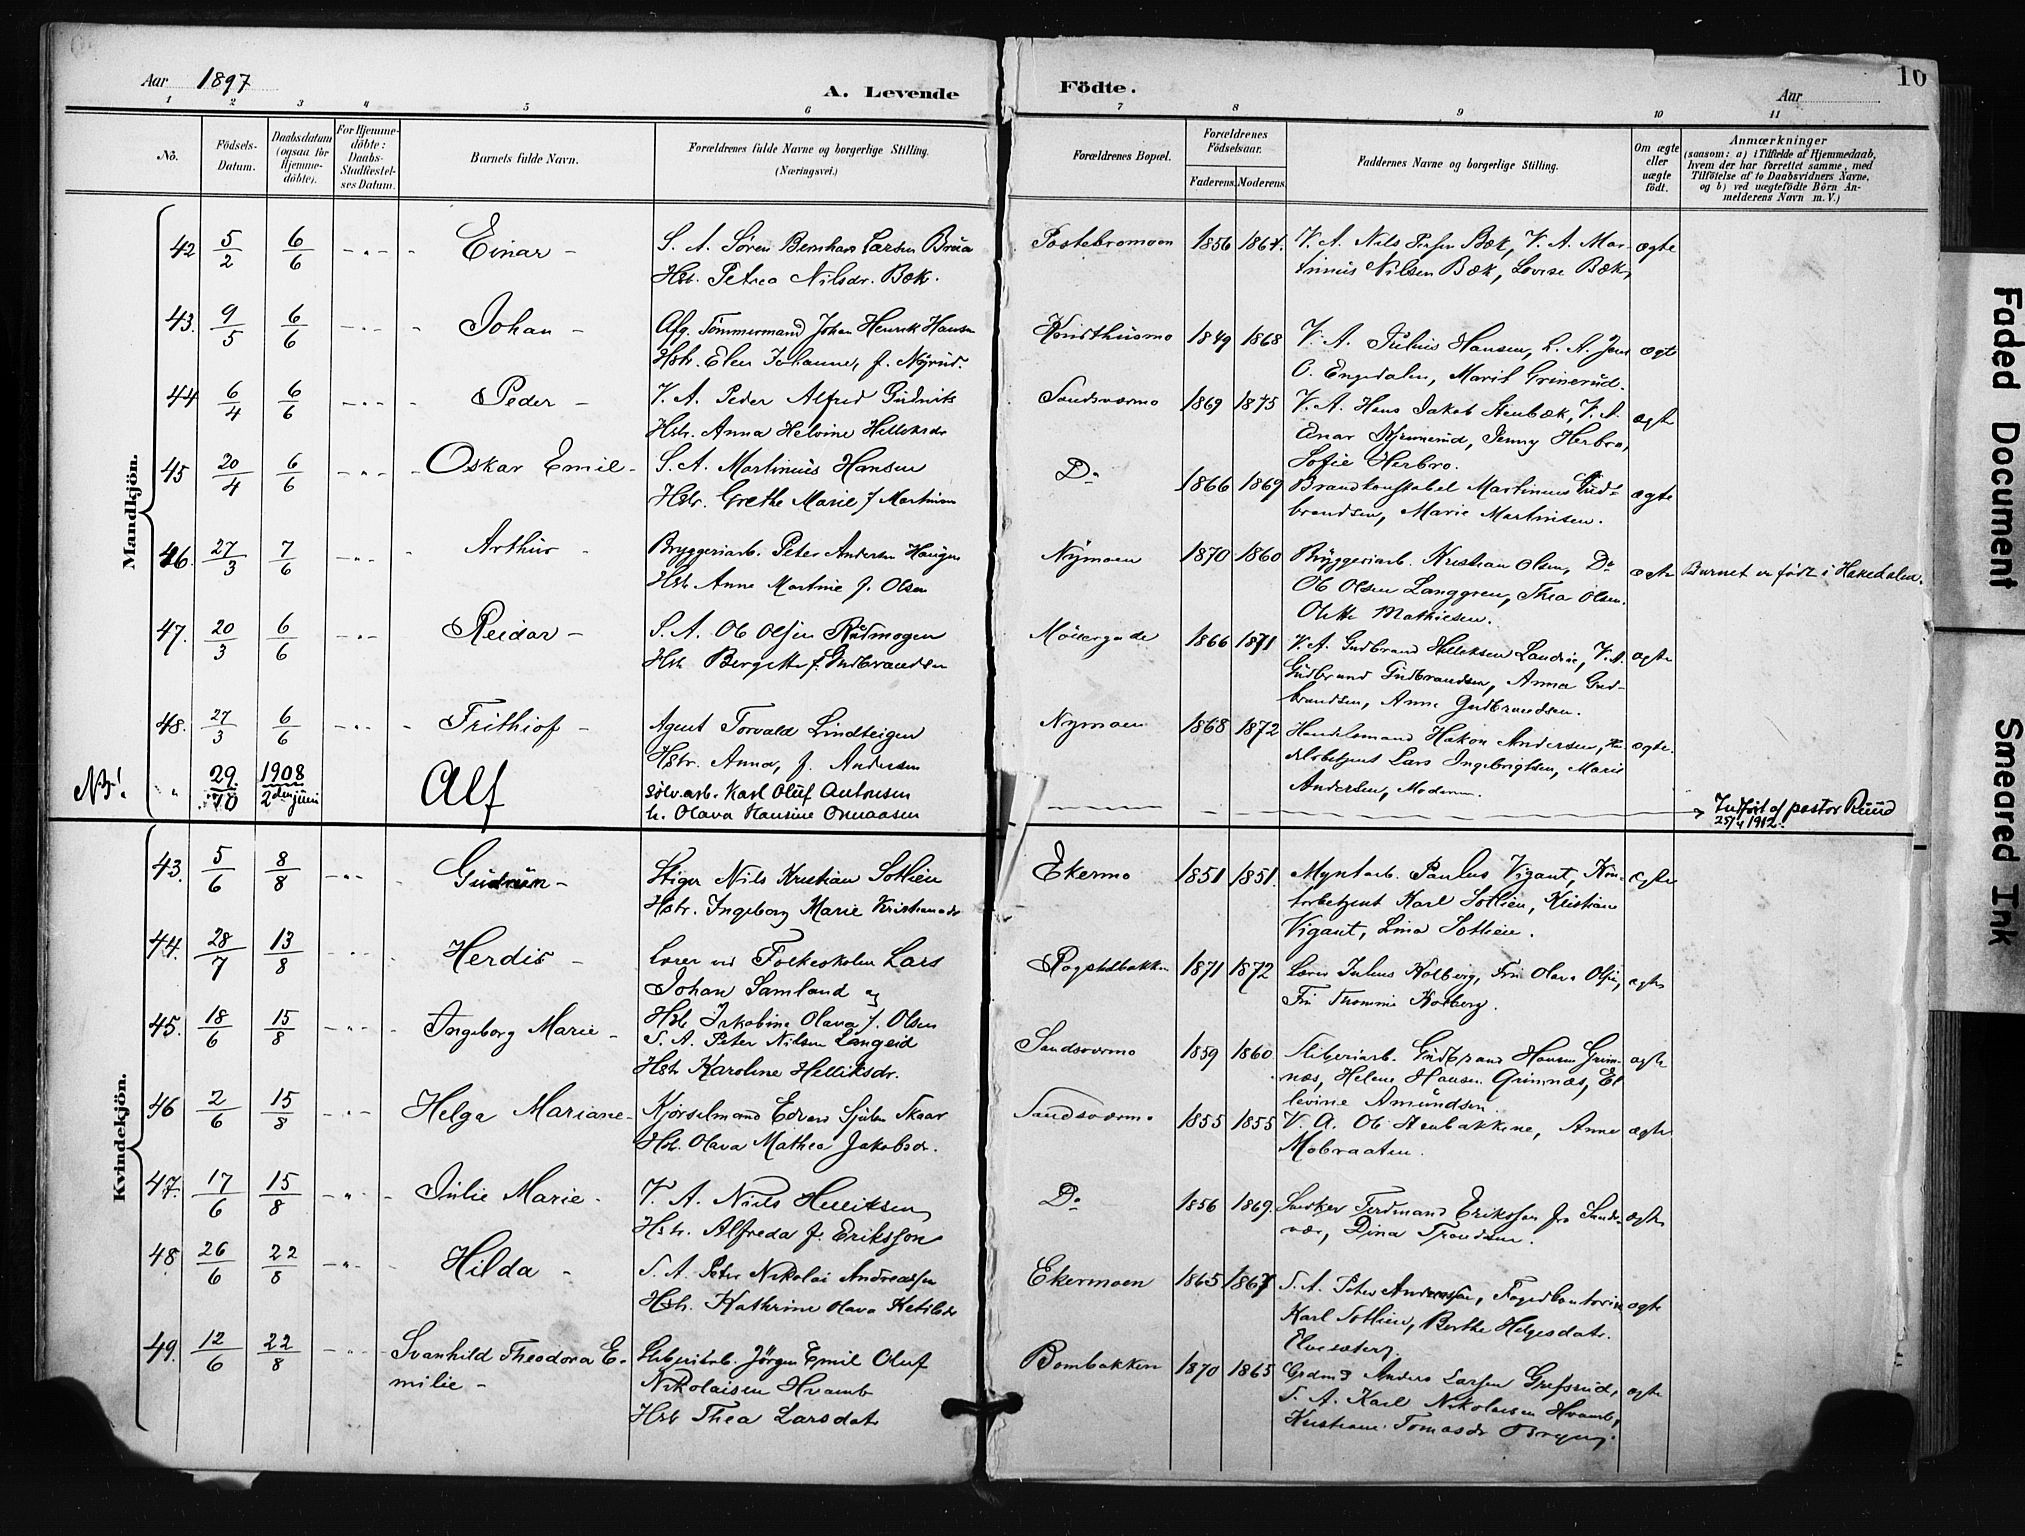 Aar 1897
A. Levende Födte.
Aar
10
1 2 3 4 5 6 7 8 9 10 11
No.
Födsels-Datum.
Daabsdatum (ogsaa for Hjemme-döbte).
For Hjemme-döbte: Daabs-Stadfæstel-ses Datum.
Barnets fulde Navn.
Forældrenes fulde Navne og borgerlige Stilling. (Næringsvei.)
Forældrenes Bopæl.
Forældrenes Födselsaar.
Faderens. Moderens.
Faddernes Navne og borgerlige Stilling.
Om ægte eller uægte födt.
Anmærkninger
(saasom: a) i Tilfælde af Hjemmedaab, hvem der har forrettet samme, med Tilföielse af to Daabsvidners Navne, og b) ved uægtefödte Börn Anmelderens Navn m. V.)
Mandkjön.
42 5/2 6/6 Einar - S. A. Sören Bernhard Larsen Brua
Hst. Petrea Nilsdr. Bæk.
1856 1864. V. A. Nils Bæk, V. A. Mar-
tinius Nilsen Bæk, Lovise Bæk,
ægte
43. 9/5 6/6 Johan - Afg. Tömmermand Johan Henrik Hansen
Hstr. Elen Johanne, f. Nyrud.
1849 1868 V. A. Julius Hansen, L. A. Jens
O. Engedalen, Marit Grinerud.
ægte
44 6/4 6/6 Peder - V. A. Peder Alfred
Hstr. Anna Helvine Helliksdr
Sandsværmo 1869 1875 V. A. Hans Jakob Stenbæk, V. A.
Jenny Herbro,
Sofie Herbro.
ægte
45 20/4 6/6 Oskar Emil - S. A. Martinius Hansen
Hstr. Grethe Marie, f Martinsen
Do 1866 1869 Brandkonstabel Martinius Gud-
brandsen, Marie Martinsen.
ægte
46. 27/3 7/6 Arthur - Bryggeriarb. Peter Andersen Haugen
Hst Anne Martine f. Olsen
Nymoen 1870 1860 Bryggeriarb. Kristian Olsen, Do
Ole Olsen Langgren, Thea Olsen.
Olette Mathiesen.
ægte Barnet er födt i Hakedalen.
47. 20/3 6/6 Reidar - S. A. Ole Olsen Rudmogen
Hst Bergitte f. Gudbrandsen
Möllergade 1866 1871 V. A. Gudbrand Helliksen V. A.
Gudbrand Gudbrandsen, Anna Gud-
brandsen, Anne Gudbrandsen.
ægte
48. 27/3 6/6 Frithiof - Agent Torvald Lindteigen
Hstr. Anna, f. Andersen
Nymoen 1868 1872 Handelsmand Hakon Andersen, Han
delsbetjent Lars Ingebrigtsen, Marie
Andersen, Moderen.
ægte.
NB! 29/10 1908 2den juni Alf
sölv.arb. Karl Oluf Antonsen
h. Olava Hansine Onnaasen
Indfört af pastor Ruud
25/4 1912.
Kvindekjön.
43. 5/6 8/8 Gudrun - Stiger Nils Kristian Sotlien
Hstr. Ingeborg Marie Kristiansdr
Ekermo 1851 1851. Myntarb. Paulus Vigant, Kon-
torbetjent Karl Sotlien, Kristiane
Vigant, Lina Sotlien.
ægte
44. 28/7 13/8 Herdis - Lærer ved Folkeskolen Lars
Johan Samland og
Hst Jakobine Olava f. Olsen
1871 1872 Lærer Julius Kolberg, Fru Olava Olsen,
Fru Kolberg.
ægte
45. 18/6 15/8 Ingeborg Marie - S. A. Peter Nilsen Langeid
Hst Karoline Helliksdr.
Sandsværmo 1859 1860 Sliberiarb. Gudbrand Hansen Grim-
næs, Helene Hansen Grimnæs, El
levine Amundsen.
ægte
46 2/6 15/8 Helga Mariane - Kjörselmand Edvard Skaar
Hst. Olava Mathea Jakobsdr.
Sandsværmo 1855 1855 V. A. Ole Stenbakkene, Anne
Mobraaten.
ægte
47. 17/6 15/8 Julie Marie - V. A. Niels Helliksen
Hstr. Alfreda f. Eriksson
Do 1856 1869. Snekker Ferdinand Eriksson fra Sands-
vær, Dina Trondsen.
ægte
48. 26/6 22/8 Hilda - S. A. Peter Nikolai Andreassen
Hstr. Kathrine Olava Ketilsdr
Ekermoen 1865 1867 S. A. Peter Andreassen,
Karl Sotlien, Berthe Helgesdatr.
Elvesæter.
ægte
49. 12/6 22/8 Svanhild Theodora E-
milie -
Sliberiarb. Jörgen Emil Oluf
Nikolaisen Hvamb
Hst Thea Larsdatr
Bombakken 1870 1865 Gaardmd Anders Larsen Grefsrud,
S. A. Karl Nikolaisen Hvamb,
Kristiane Tomasdr
ægte
Faded Document
Smeared Ink